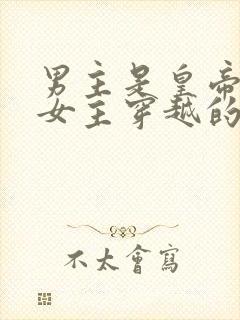 男主是皇帝
女主穿越的
不太會寫